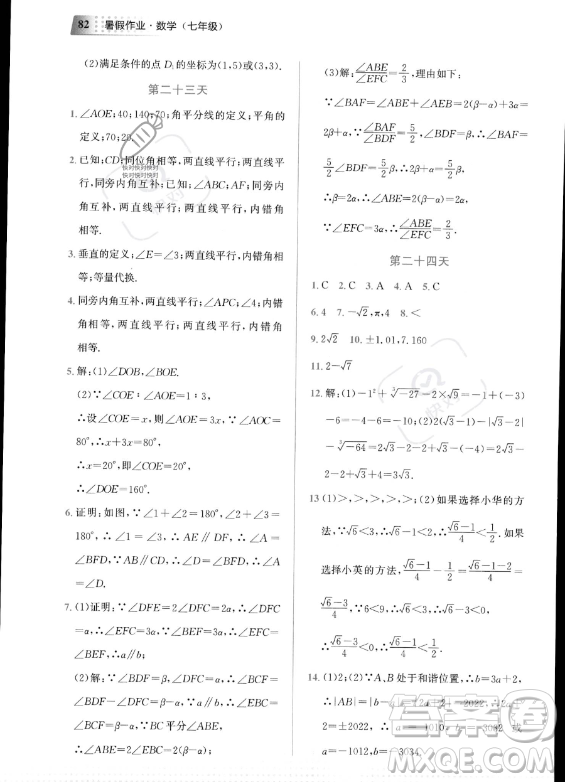 82 暑假作业·数学（七年级）
(2)满足条件的点 D₁ 的坐标为(1,5)或(3,3).
第二十三天
1. ∠AOE;40;140;70;角平分线的定义;平角的
定义;70;20.
2. 已知;CD;同位角相等,两直线平行;两直线平
行,同旁内角互补;已知;∠ABC;AF;同旁内
角互补,两直线平行;两直线平行,内错角相
等.
3. 垂直的定义;∠E=∠3;两直线平行,内错角相
等;等量代换.
4. 同旁内角互补,两直线平行;∠APC;∠4;内错
角相等,两直线平行;两直线平行,内错角
相等.
5. 解:(1)∠DOB,∠BOE.
(2)∵∠COE∶∠AOE=1∶3,
∴设∠COE=x,则∠AOE=3x,∵∠AOC=
80°,∴x+3x=80°.
∴x=20°,即∠COE=20°.
∴∠DOE=160°.
6. 证明:如图,∵∠1+∠2=180°,∠2+∠3=
180°,∴∠1=∠3,∴AE∥DF,∴∠A=
∠BFD,∵AB∥CD,∴∠D=∠BFD,∴∠A=
∠D.
7. (1)证明:∵∠DFE=2∠DFC,∠DFC=
α,∴∠EFC=3α,∵∠BAC=3α,∴∠BAC=
∠EFC,∴a∥b.
(2)解:∵a∥b,∴∠DCF=∠ABC=β,∴
∠BDF=∠DCF−∠DFC=β−α,
∴∠BCF=β−α,∵BC平分∠ABD,
∴∠ABC=∠DBC,∴β=β−α.
(3)解:∠ABE/∠EFC=2/3,理由如下:
∵∠BAF=∠BAE+∠AEB=2(β−α)+3α,
∵∠BAF/∠BDF=5/2,∴∠BAF=
5/2∠BDF=5/2(β−α),∴2(β−α)+3α=
5/2∠BDF=5/2(β−α),
∴β−2α=α,∴∠ABE=2(β−α)=2α,
∵∠EFC=3α,∴∠ABE/∠EFC=2/3.
第二十四天
1. C 2. C 3. A 4. A 5. C
6. 4 7. −√2,π,4 8. <
9. 2√2 10. ±1.01,7.160
11. 2−√7
12. 解:(1)−1²+∛−27−2×√9=−1+(−3)
−6=−4−6=−10.(2)2(√3−1)−|√3−2|
−∛−64=2√3−2−(2−√3)+4=2√3−
2−2+√3+4=3√3.
13 (1)>,>,>,>;(2)如果选择小华的方
法,∵√6<3,∴√6−3<0,∴(√6−3)/4<0.如果
选择小英的方法,∵(√6−1)/4−1/2=(√6−1−2)/4=
(√6−3)/4,∵6<9,∴√6<3,∴√6−3<0,
∴(√6−3)/4<0,∴(√6−1)/4<1/2.
14. (1)2;(2)∵A、B处于和谐位置,∴b=3a+2,
∴|AB|=|b−a|=|2a+2|=2022,∴2a+
2=±2022,∴a=1010,b=3032或
a=−1012,b=−3034.